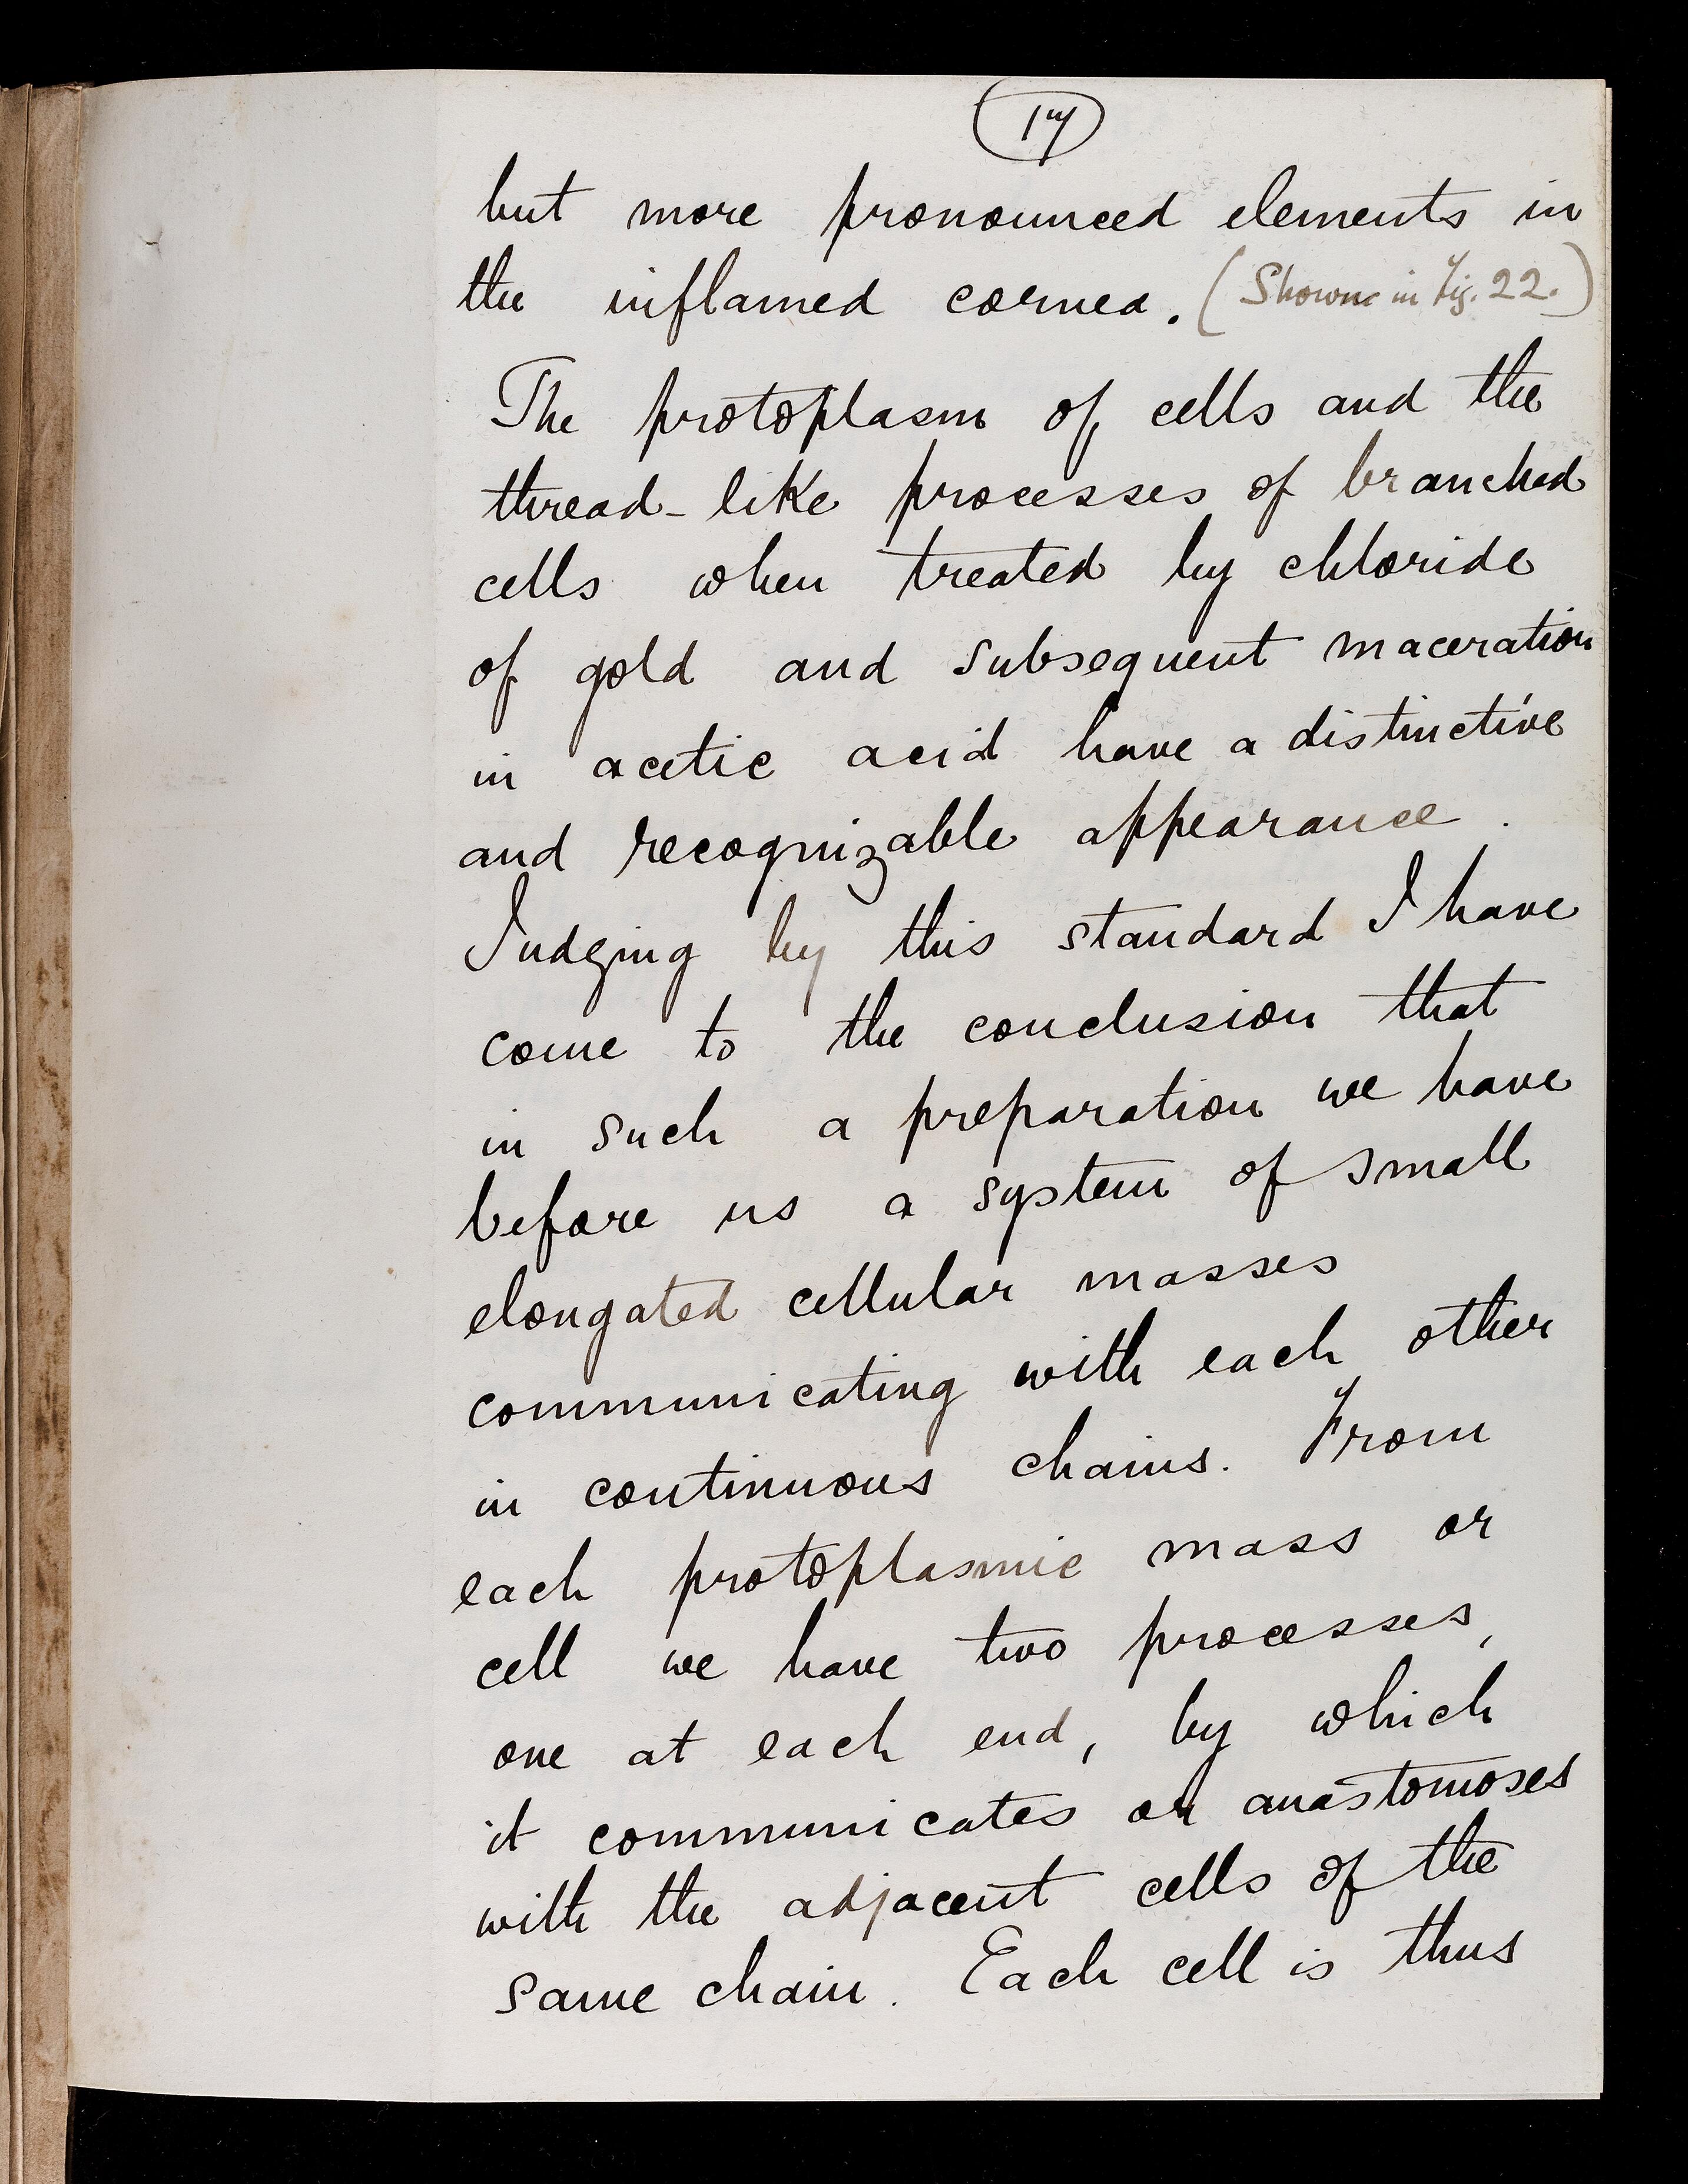 17
but more pronounced elements in
the inflamed cornea. (Shown in Fig. 22.)
The protoplasm of cells and the
thread-like processes of branched
cells when treated by chloride
of gold and subsequent maceration
in acetic acid have a distinctive
and recognizable appearance.
Judging by this standard I have
come to the conclusion that
in such a preparation we have
before us a system of small
elongated cellular masses
communicating with each other
in continuous chains. From
each protoplasmic mass or
cell we have two processes,
one at each end, by which
it communicates or anastomoses
with the adjacent cells of the
same chain. Each cell is thus